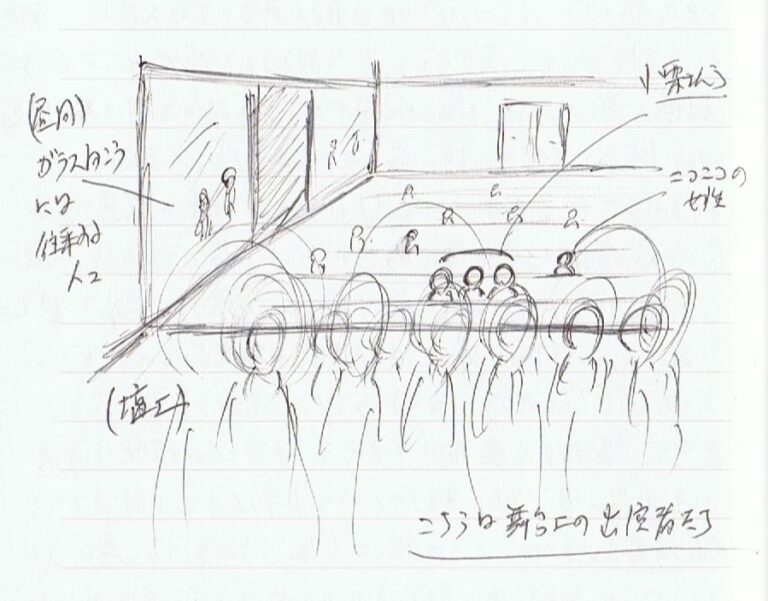 (昼間)
ガラス向こう
には
往来する
人々
小栗さんら
ニコニコの
女性
(壇上)
こちらは舞台上の出演者たち